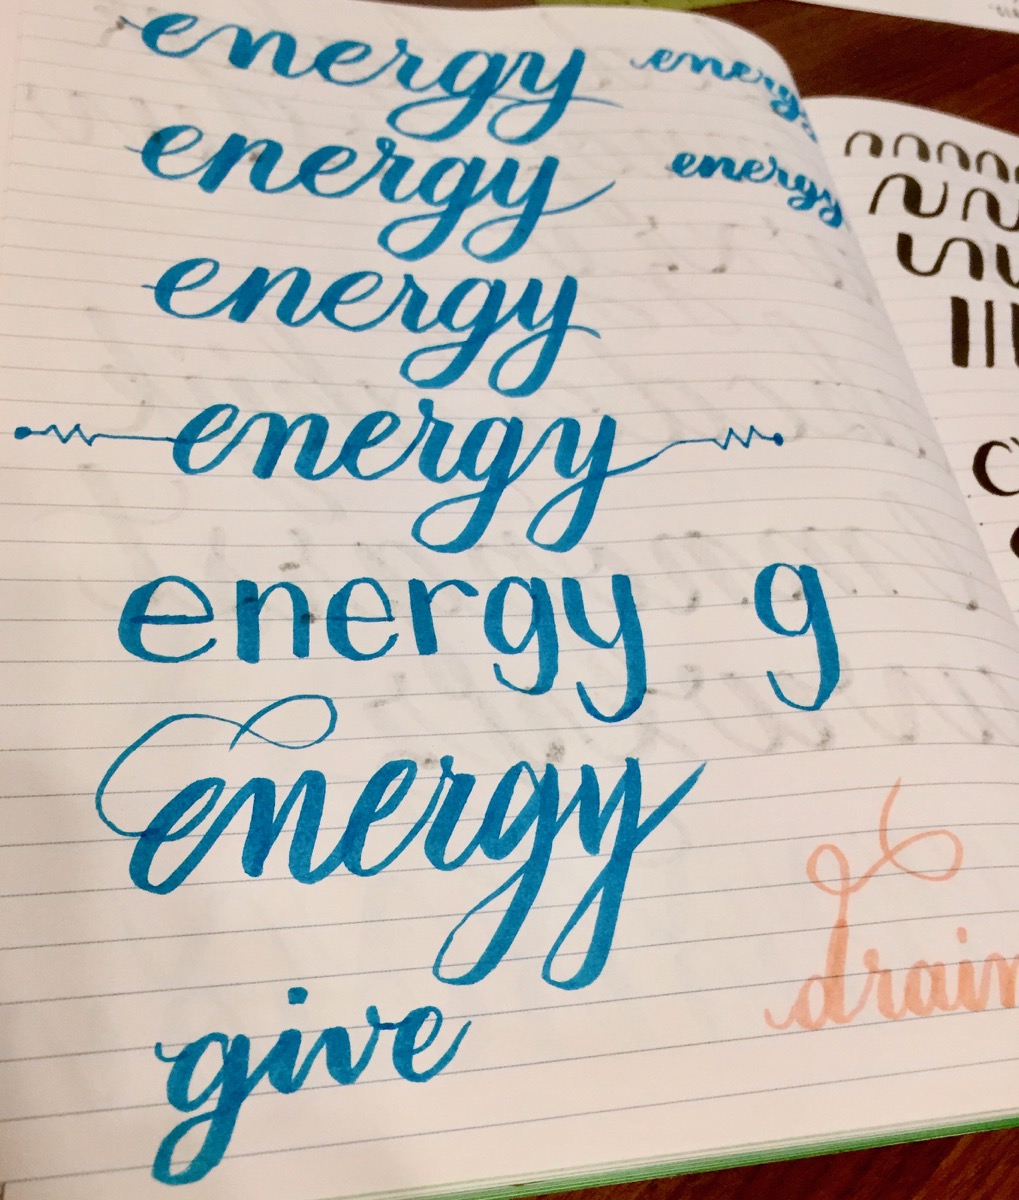 energy energy
energy energy
energy
energy
energy g
energy
drain
give